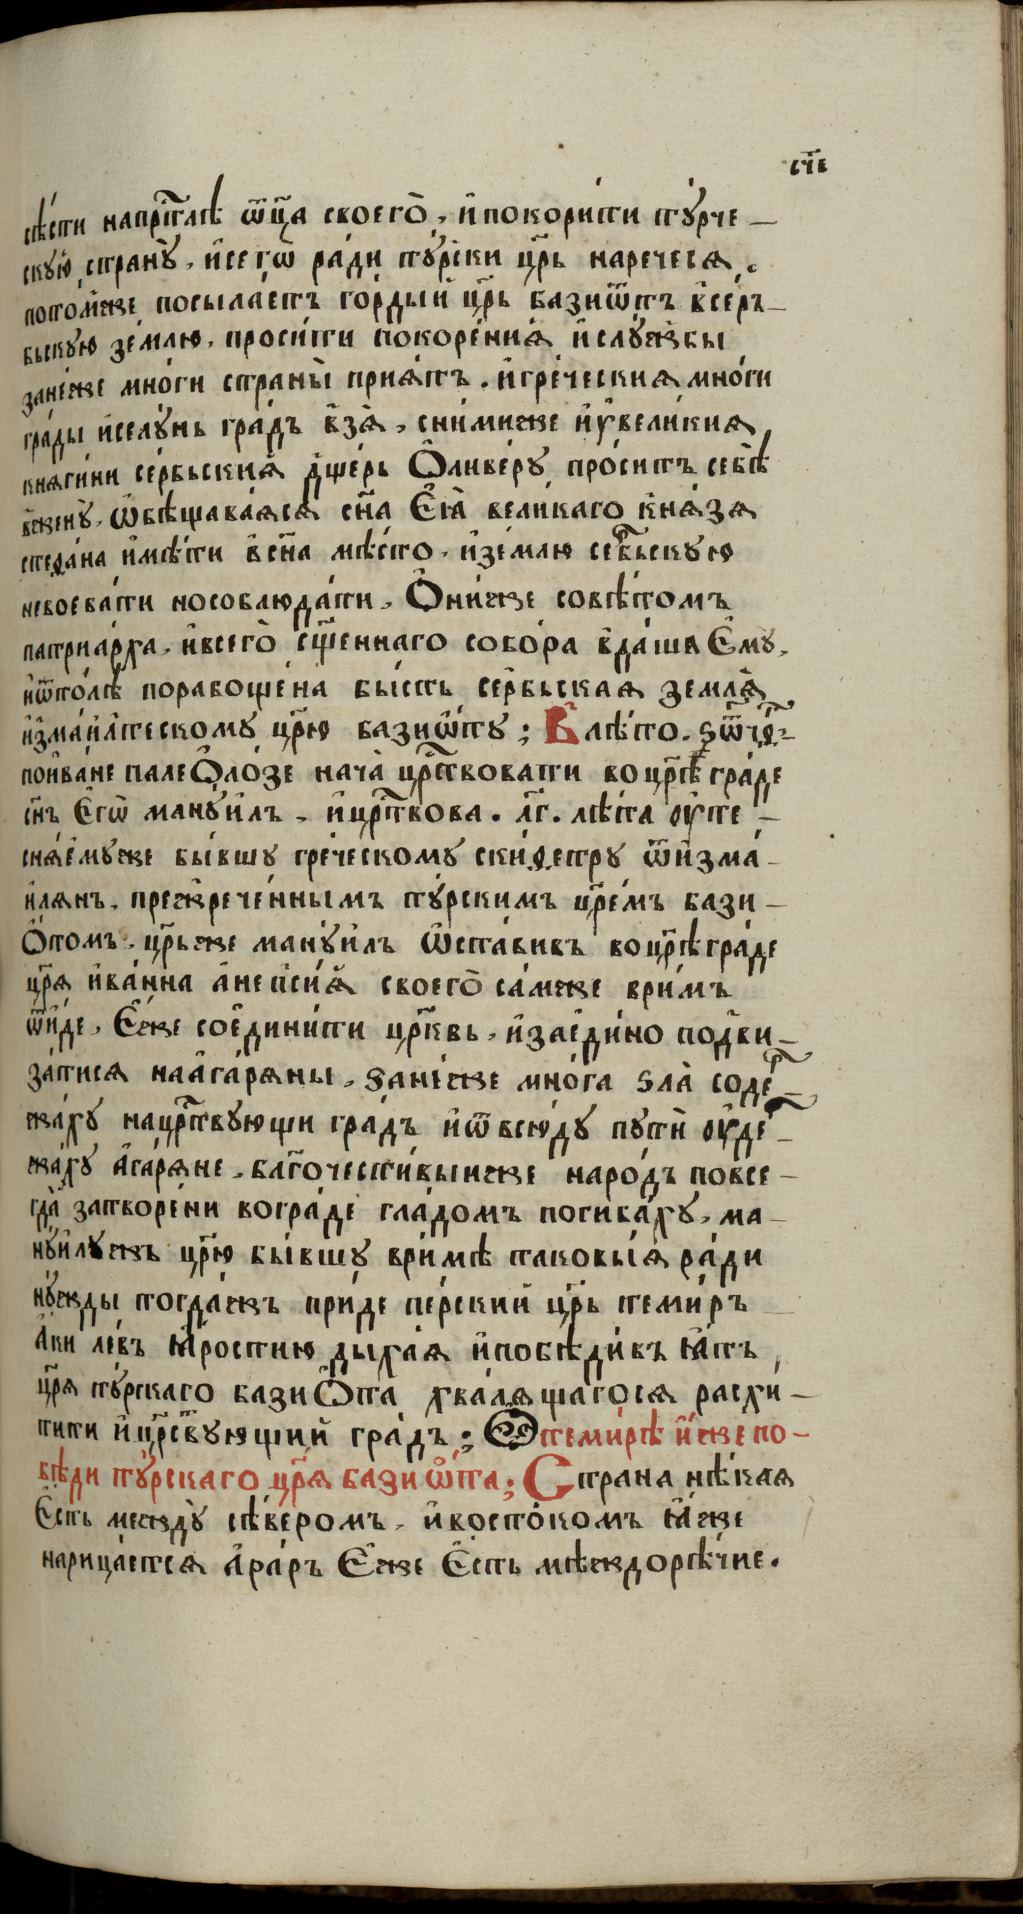 сч҃в
сѣ́сти напрⷭ҇тлѣ ѿц҃а своего̀, и҆покори́ти ту́рче –
скую̀ странꙋ̀, и҆сегѡ̀ ра́ди ту́рски цр҃ь наречесѧ,
пото́мже посыла́етъ го́рдый цр҃ь базиѿтъ в̾се́рь–
бьскую зе́млю, проси́ти покоре́ниѧ и҆слу́жбы
зане́же мно́ги страны̀ приѧ́тъ. и҆гре́ческиѧ мно́ги
гра́ды и҆селу́нь гра́дъ в̾зѧ̀, сни́миже и҆ꙋ҆вели́киѧ
кнѧги́ни се́рбьскиѧ̀ дщ҃е́рь Ѻ҆ливе́ру про́ситъ себѣ̀
в̾женꙋ̀, ѡ҆бѣщава́ѧсѧ сн҃а Еѧ҆̀ вели́каго кн҃ѧзѧ
стеѳа́на и҆мѣ́ти в̾сн҃а мѣ́сто, и҆зе́млю се́рбьскую
невоева́ти нособлюда́ти, Ѻ҆ни́же совѣ́томъ
патриа́рха, и҆всего̀ сщ҃е́ннаго собо́ра в̾да́ша Е҆му̀,
и҆ѿто́лѣ порабоще́на бы́сть се́рбьскаѧ землѧ̀
и҆зма́ильтескому цр҃ю базиѿ́ту; В̾лѣ́то. ѕѿч҃ѳ–
пои҆ва́не палеѺло́зе нача̀ црⷭ҇твовати во цр҃ѣгра́де
сн҃ъ Е҆гѡ̀ману́илъ, и҆црⷭ҇твова. л҃г. лѣ́та оу҆те –
снѧ́емуже бы́вшу гре́ческому ски́ѳетру ѿи҆зма́–
илѧнъ, преж̾рече́ннымъ ту́рскимъ цр҃е́мъ бази –
Ѻ҆томъ, цр҃ьже ману́илъ ѡ҆ста́вивъ во цр҃ѣгра́де
цр҃ѧ и҆ва́нна а҆непсиѧ̀ своего̀ са́мже ври́мъ
ѿи́де, Е҆́же соедини́ти цр҃ковь, и҆заеди́но подви –
за́тисѧ наа҆га́рѧны, ѕане́же мно́га ѕла̀ содер –
жа́ху нацрⷭ҇твующи гра́дъ и҆ѿвсю́ду путѝ оу҆дер –
жа́ху а҆га́рѧне, бл҃гочести́выиже наро́дъ повсе –
гда̀ затворе́ни вогра́де гла́домъ погиба́ху, ма –
ну́илужъ цр҃ю бы́вшу ври́мѣ таковы́ѧ ра́ди
ну́жды тогда́жъ прі́де пе́рский цр҃ь теми́ръ
а҆́ки ле́въ ꙗ҆́ростию дыха́ѧ и҆побѣди́въ ꙗ҆́тъ,
цр҃ѧ ту́рскаго базиѺ҆та хва́лѧщагосѧ расхи́ –
тити и҆црⷭ҇твующий гра́дъ; Ѻ҆теми́рѣ и҆́же по –
бѣди ту́рскаго цр҃ѧ базиѿ́та; Страна нѣ́каѧ
Е҆́сть между̀ сѣ́веромъ, и҆восто́комъ ꙗ҆́же
нарица́етсѧ а҆ра́ръ Е҆́же Е҆́сть мѣждорѣ́чие.